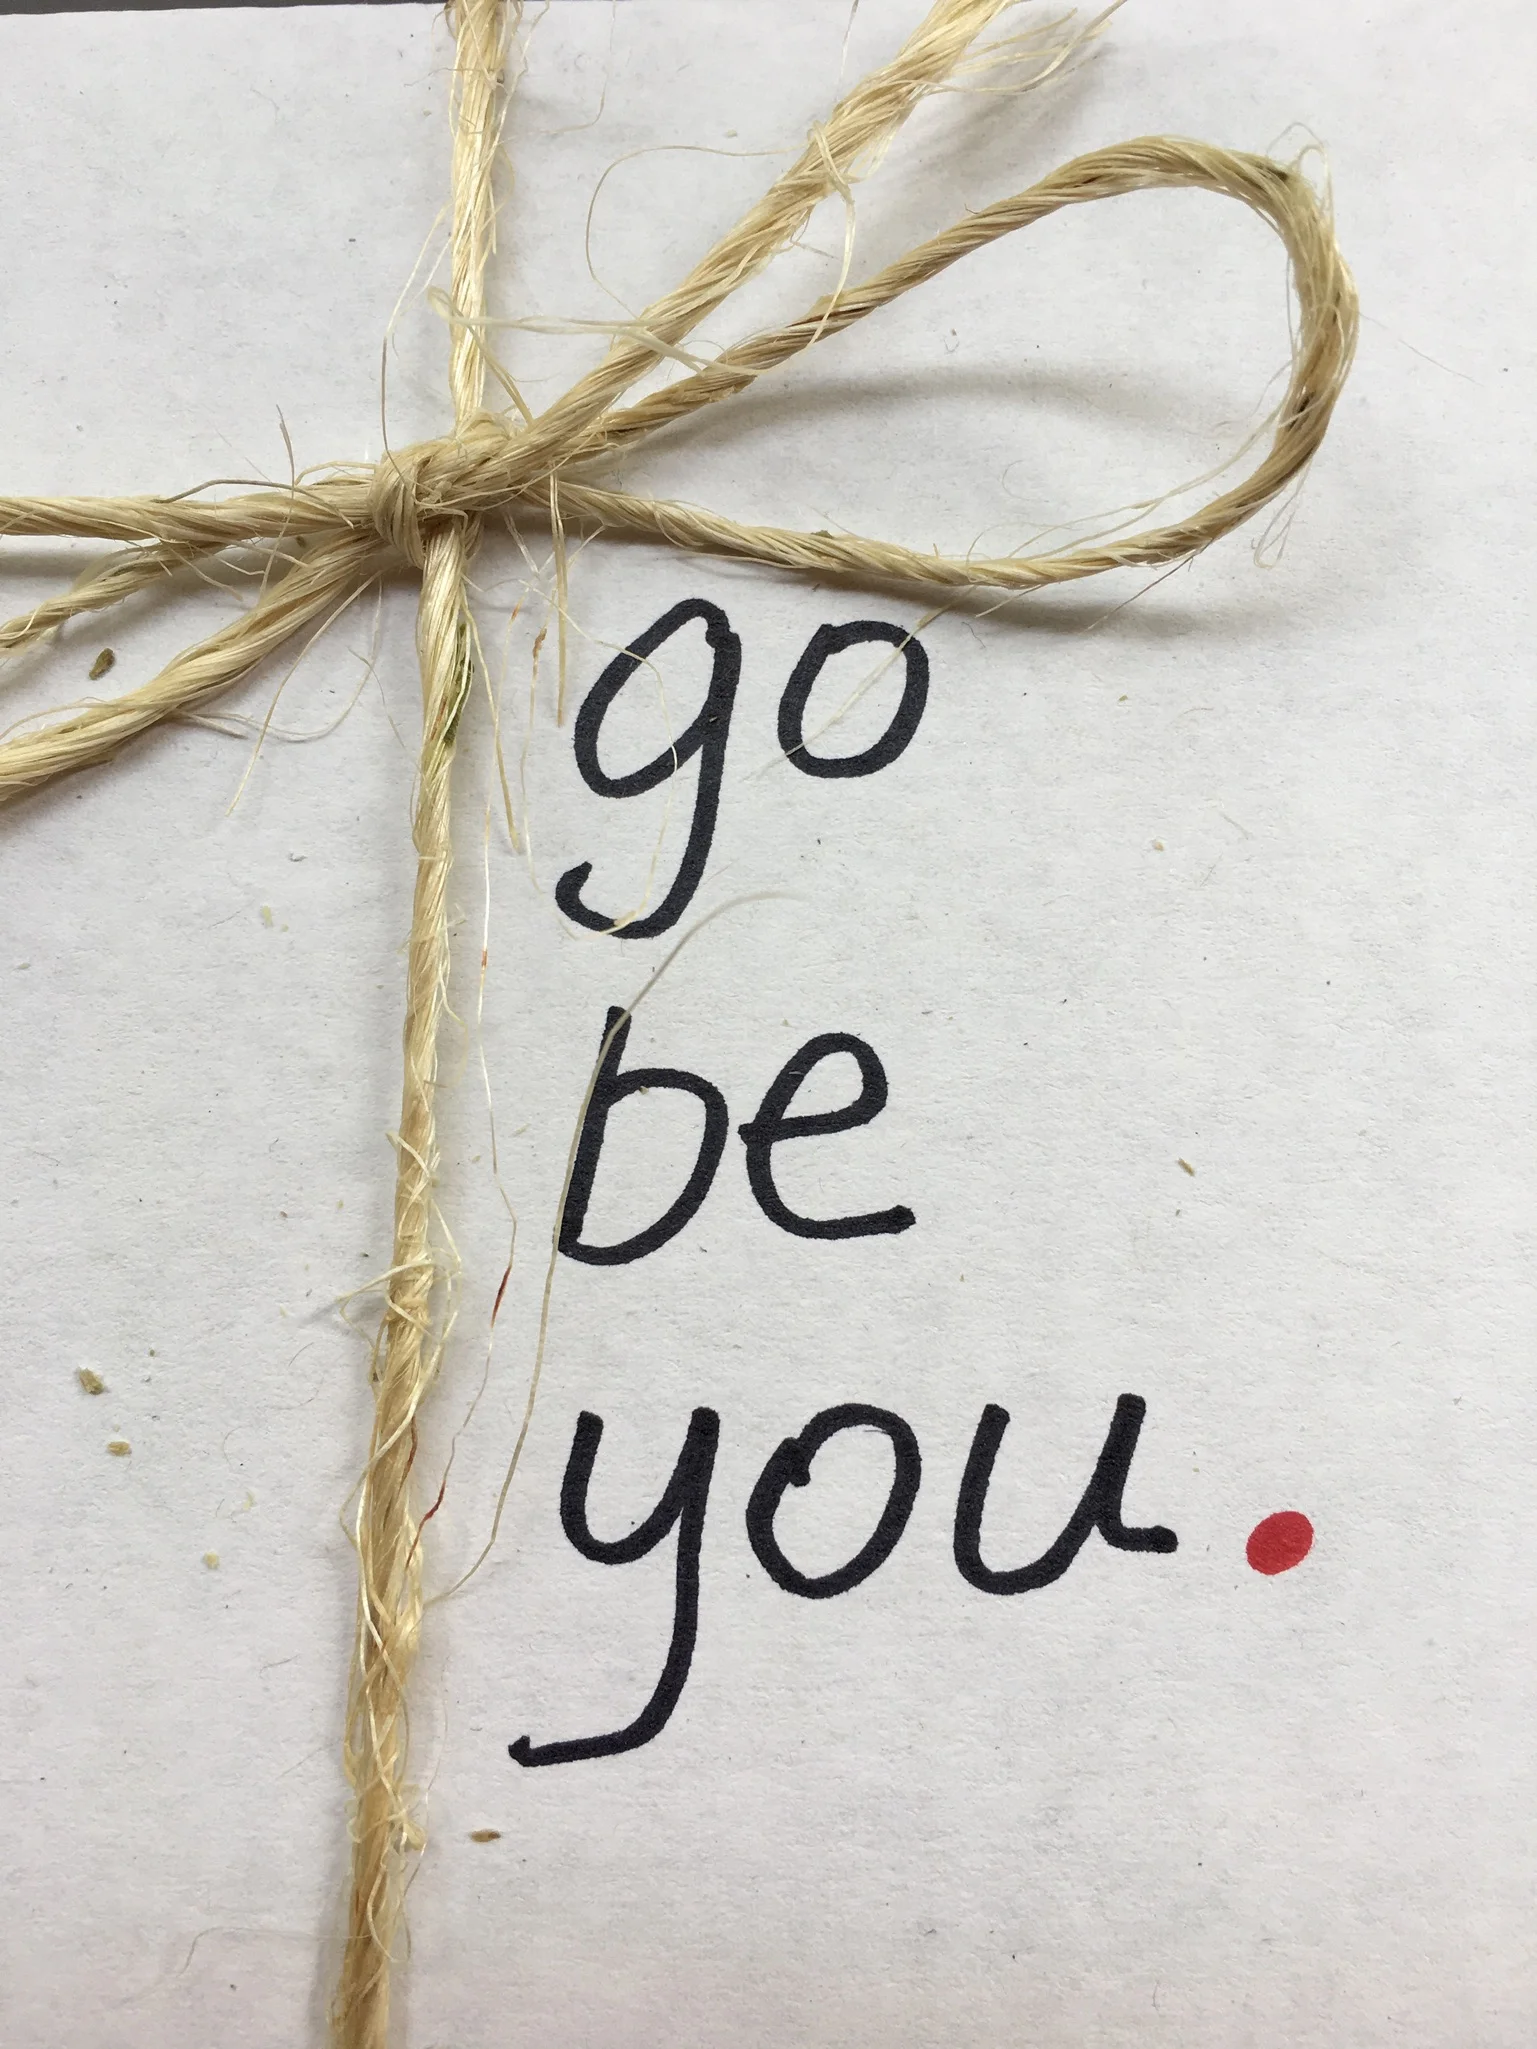 go
be
you.